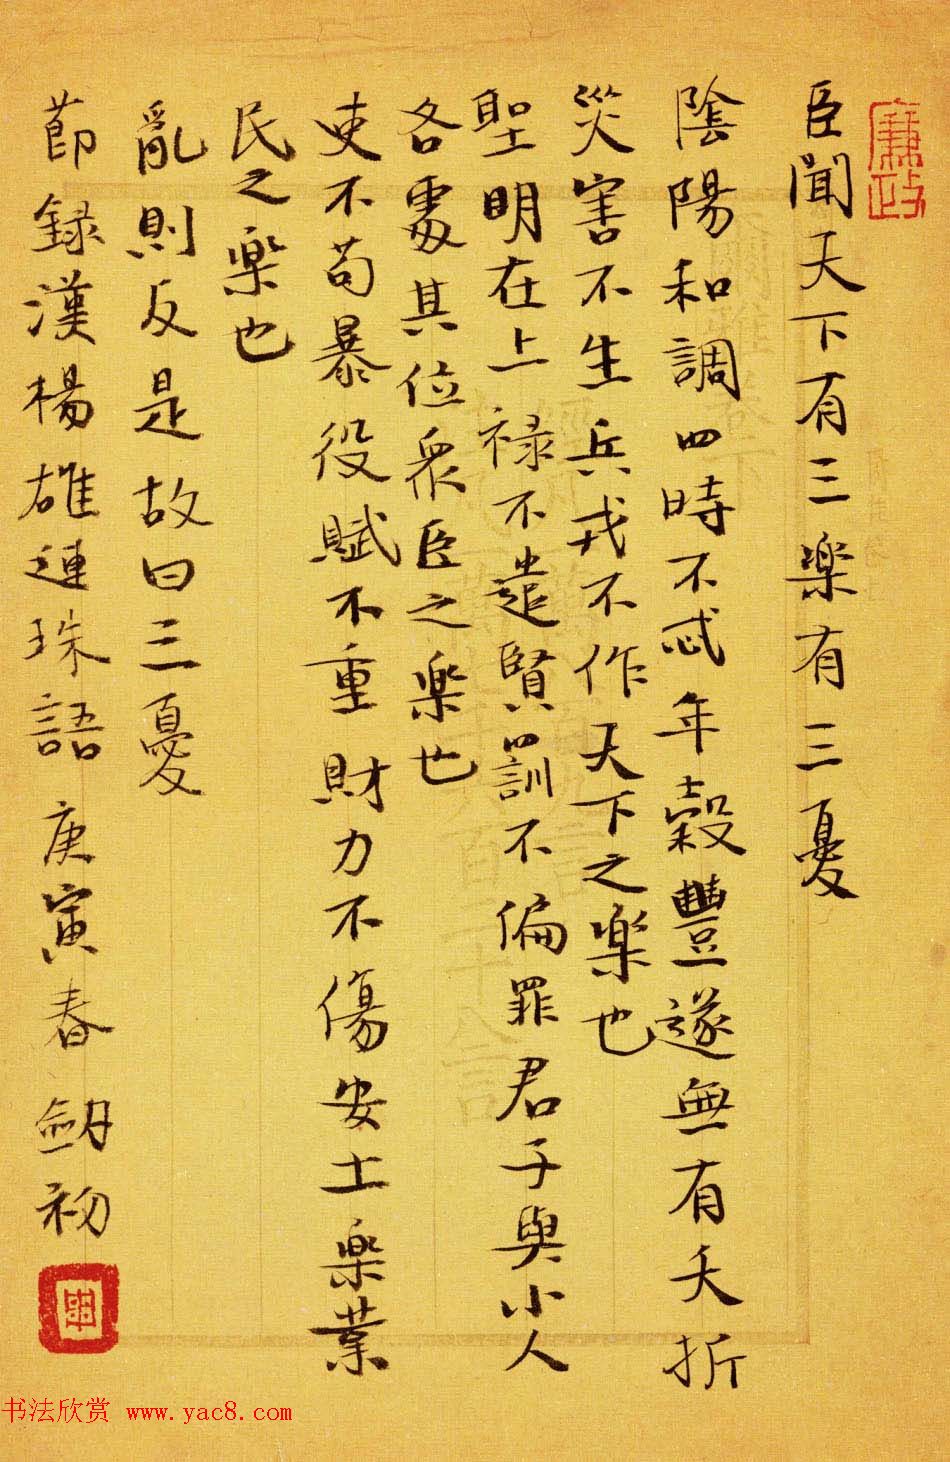 廉政
臣聞天下有三楽有三憂
陰陽和調四時不忒年穀豐遂無有夭折
災害不生兵戎不作天下之楽也
聖明在上禄不遺賢罰不偏罪君子與小人
各處其位衆臣之楽也
吏不苟暴役賦不重財力不傷安土楽業
民之楽也
亂則反是故曰三憂
節録漢楊雄連珠語庚寅春 劒初
书法欣赏 www.yac8.com